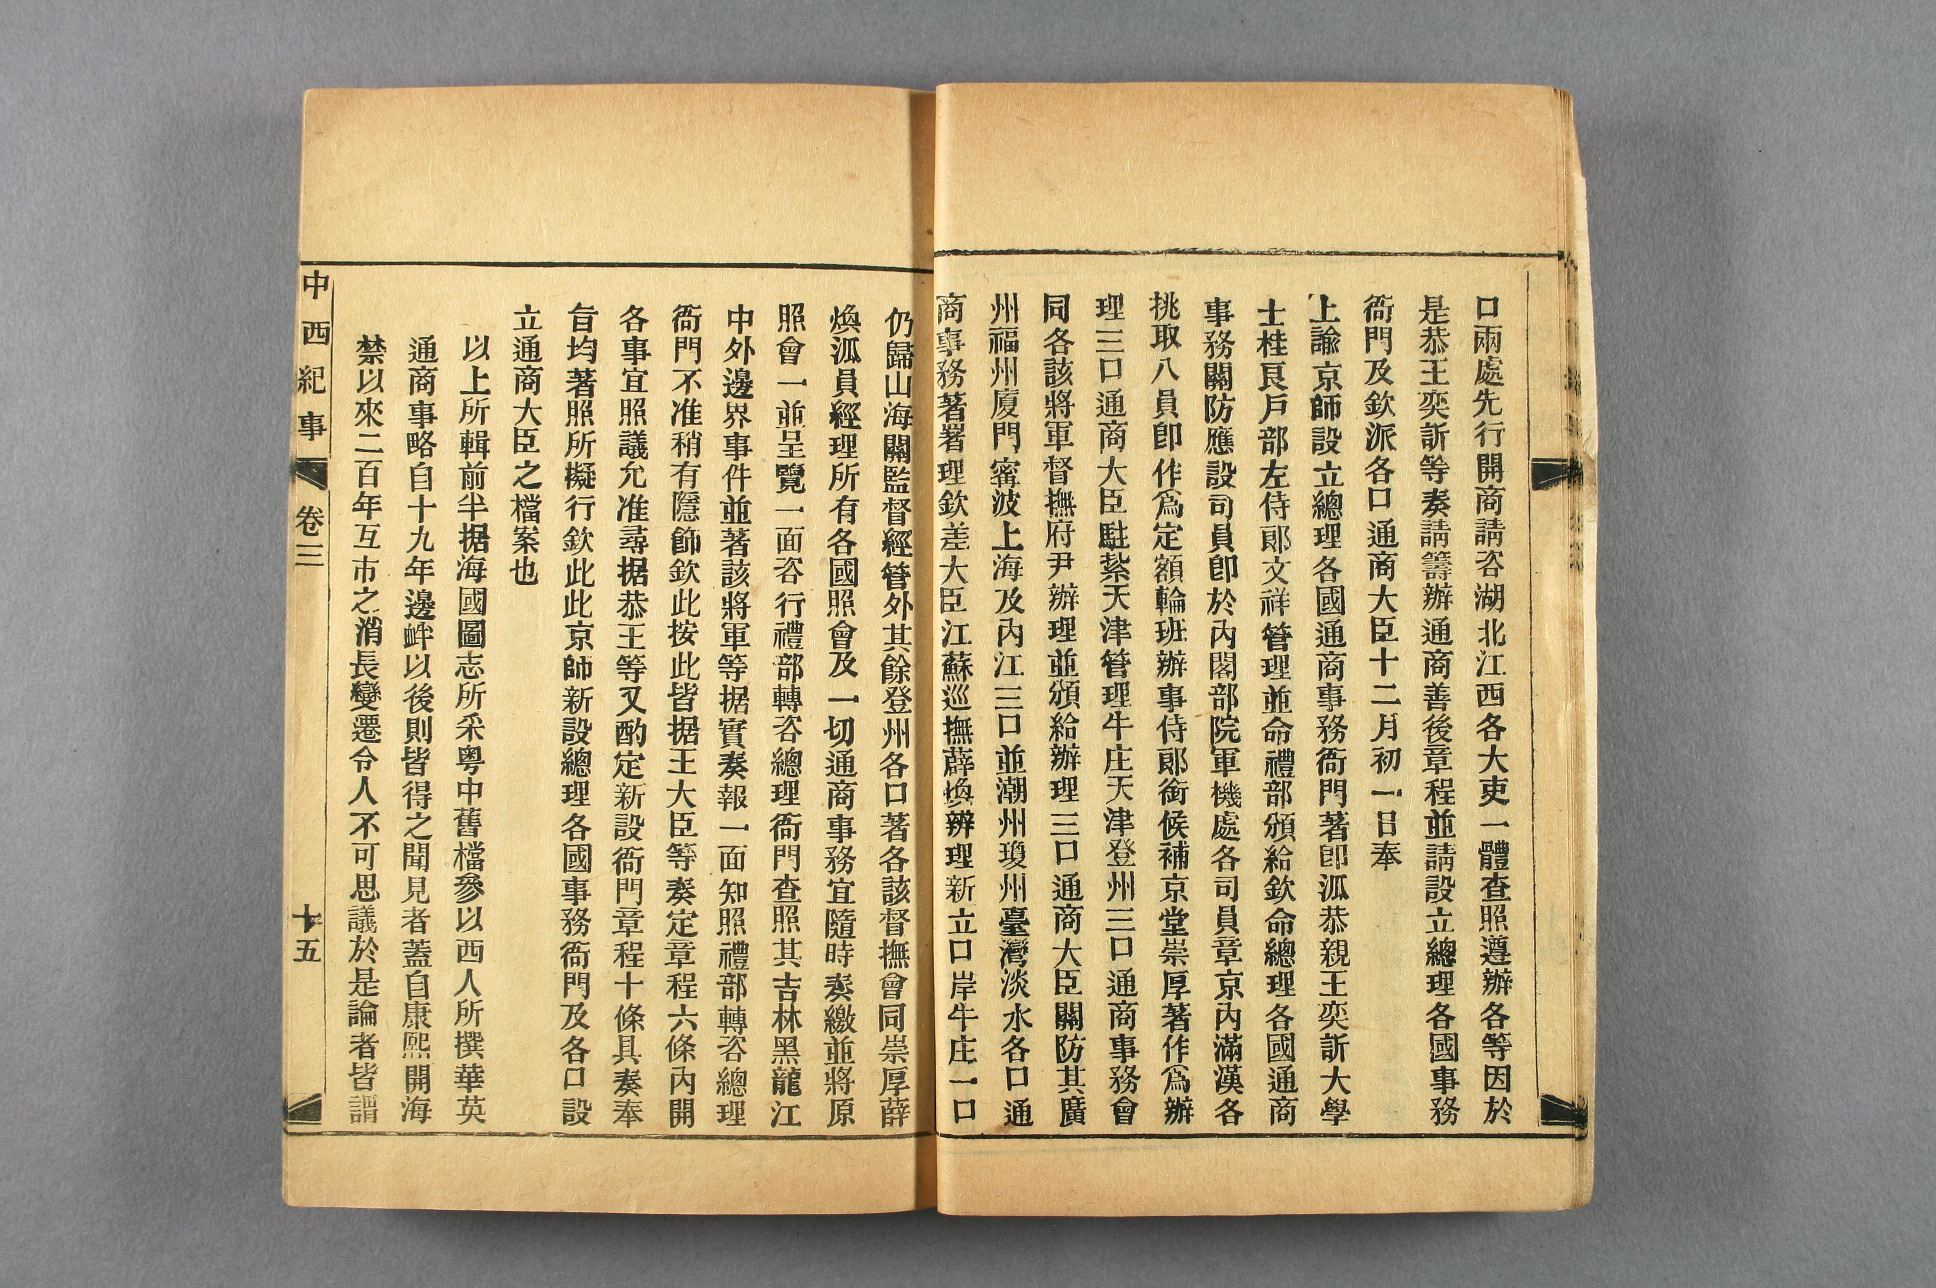 口兩處先行開商請咨湖北江西各大吏一體查照遵辦各等因於
是恭王奕訢等奏請籌辦通商善後章程並請設立總理各國事務
衙門及欽派各口通商大臣十二月初一日奉
上諭京師設立總理各國通商事務衙門著卽派恭親王奕訢大學
士桂良戶部左侍郞文祥管理並命禮部頒給欽命總理各國通商
事務關防應設司員卽於內閣部院軍機處各司員章京內滿漢各
挑取八員卽作爲定額輪班辦事侍郞銜候補京堂崇厚著作爲辦
理三口通商大臣駐紮天津管理牛庄天津登州三口通商事務會
同各該將軍督撫府尹辦理並頒給辦理三口通商大臣關防其廣
州福州廈門甯波上海及內江三口並潮州瓊州臺灣淡水各口通
商事務著署理欽差大臣江蘇巡撫薛煥辦理新立口岸牛庄一口
仍歸山海關監督經管外其餘登州各口著各該督撫會同崇厚薛
煥派員經理所有各國照會及一切通商事務宜隨時奏繳並將原
照會一並呈覽一面咨行禮部轉咨總理衙門查照其吉林黑龍江
中外邊界事件並著該將軍等据實奏報一面知照禮部轉咨總理
衙門不准稍有隱飾欽此按此皆据王大臣等奏定章程六條內開
各事宜照議允准尋据恭王等又酌定新設衙門章程十條具奏奉
旨均著照所擬行欽此此京師新設總理各國事務衙門及各口設
立通商大臣之檔案也
以上所輯前半据海國圖志所采粤中舊檔參以西人所撰華英
通商事略自十九年邊衅以後則皆得之聞見者蓋自康熙開海
禁以來二百年互市之消長變遷令人不可思議於是論者皆謂
中西紀事 卷三 十五